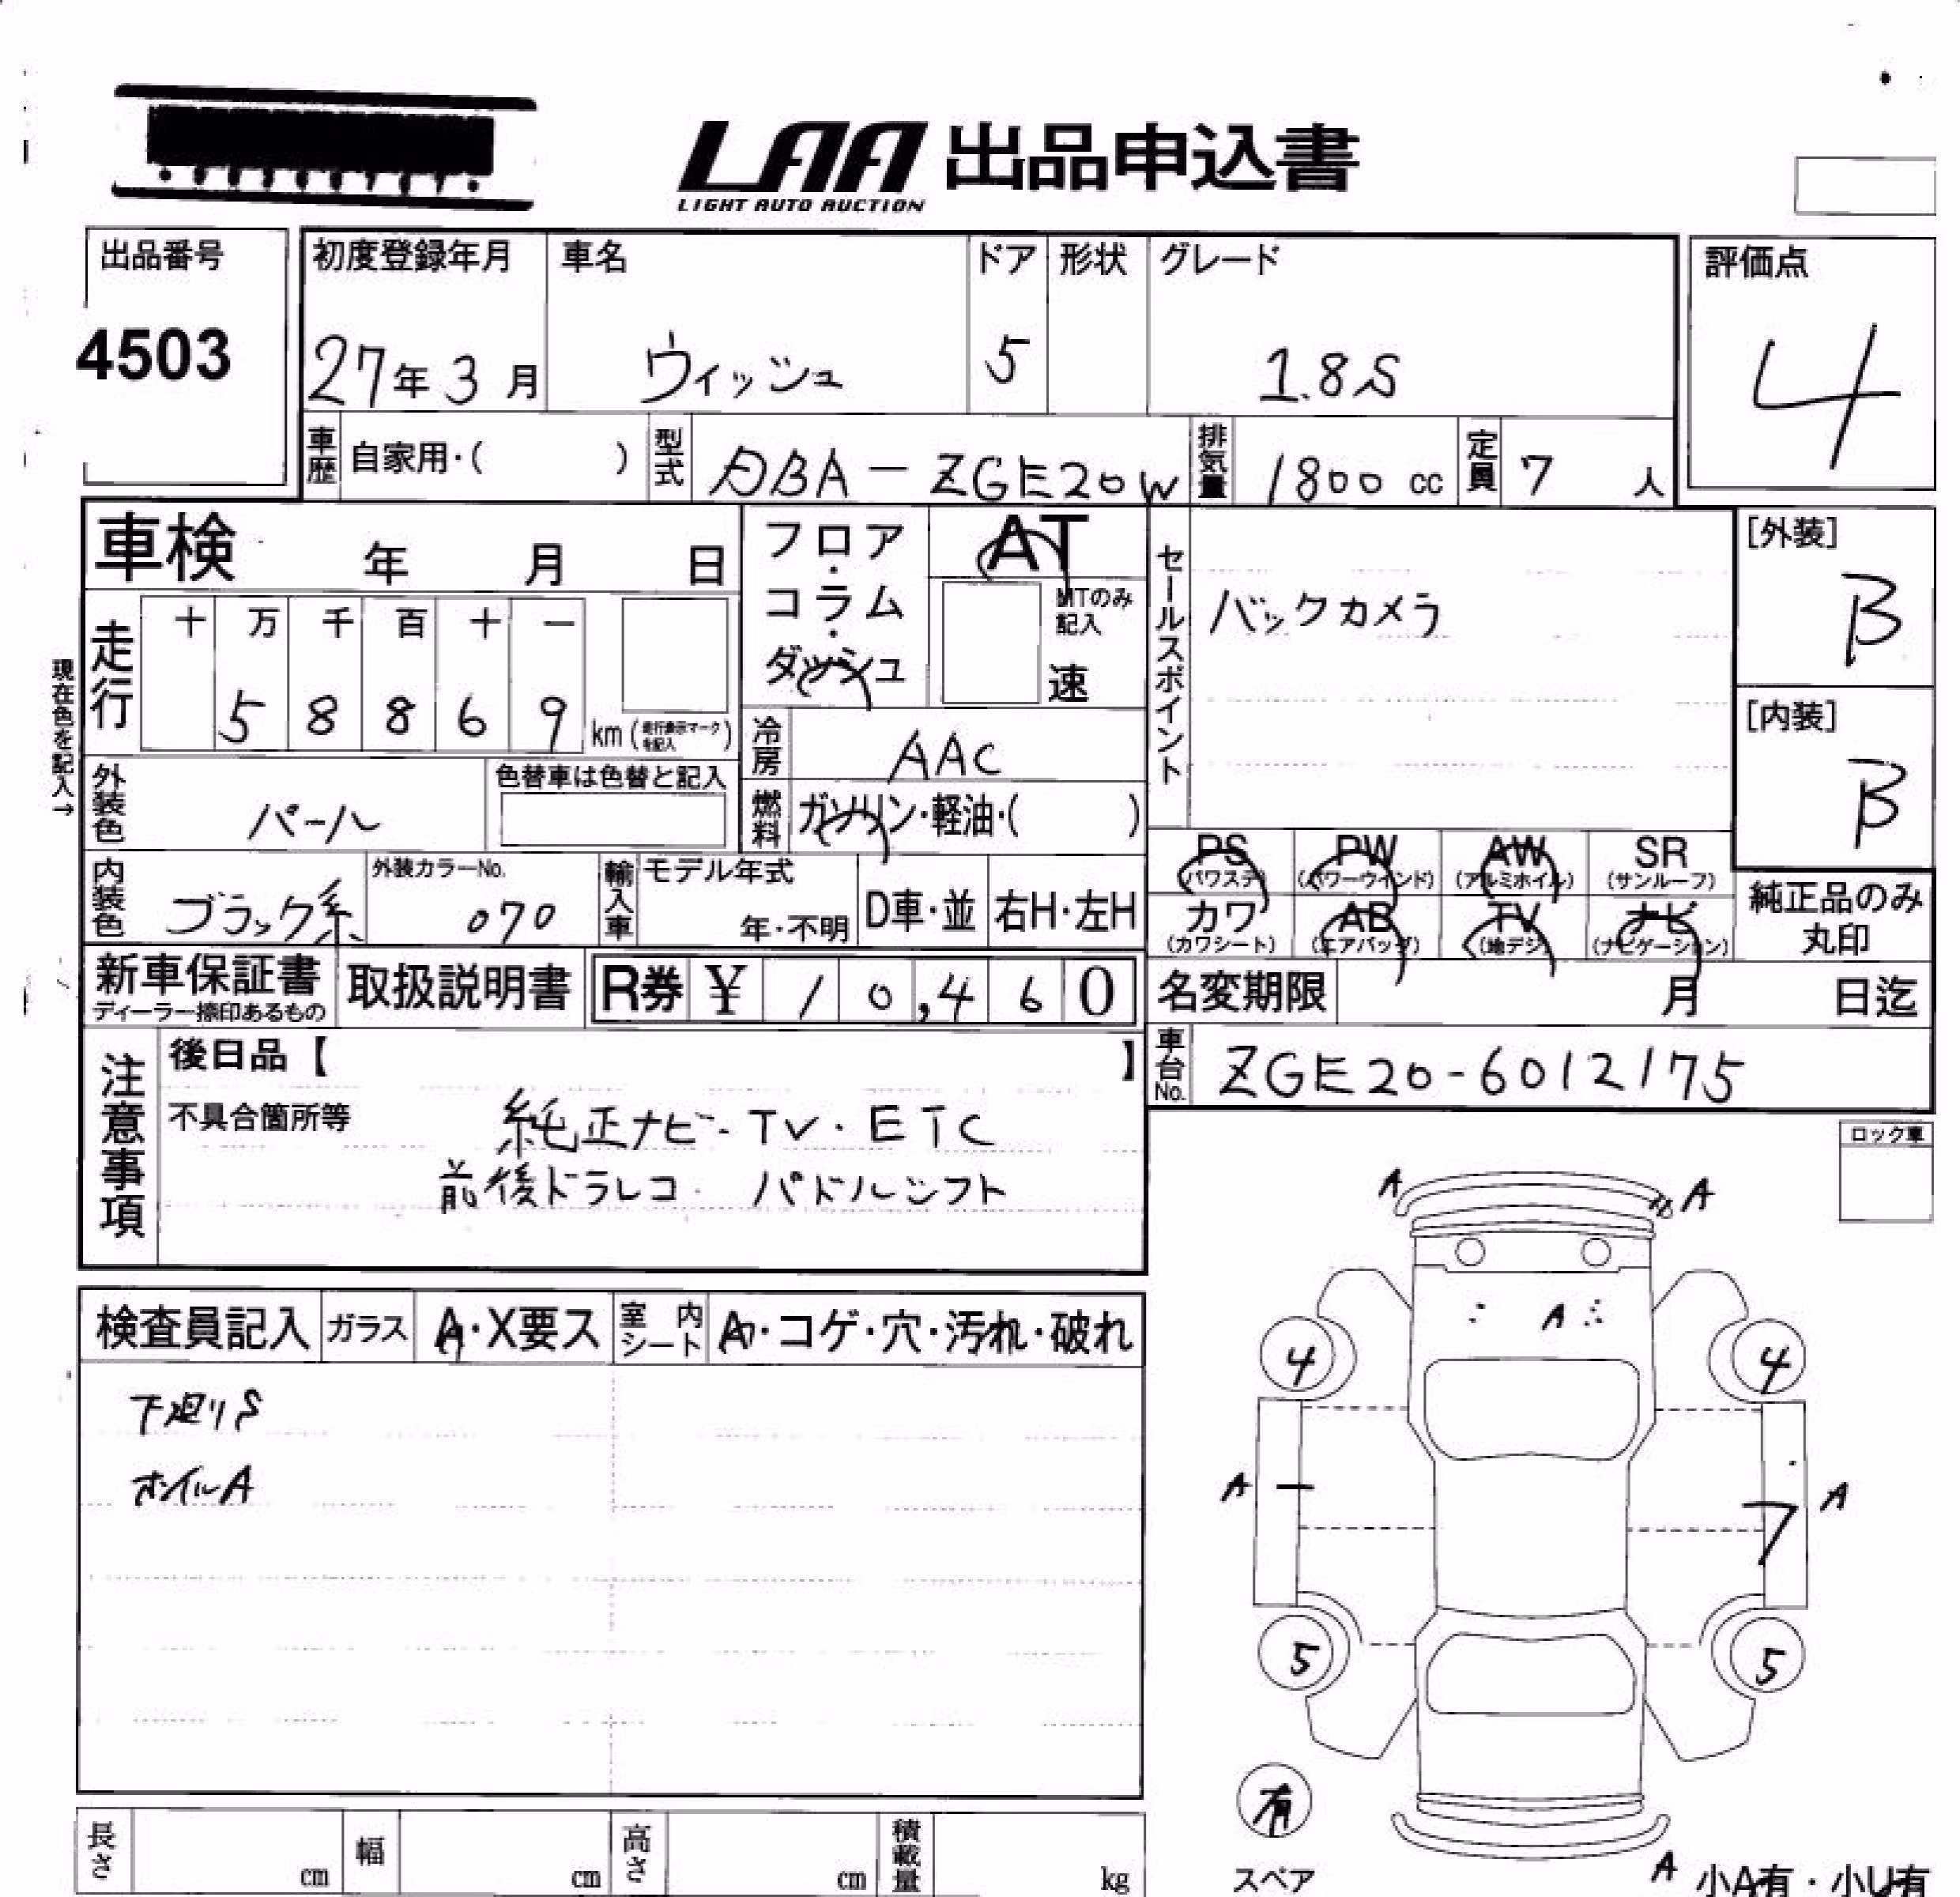 LAA 出品申込書
LIGHT AUTO AUCTION
出品番号
4503
初度登録年月
27年3月
車名
ウィッシュ
ドア
5
形状
グレード
1.8S
評価点
4
車歴 自家用・( )
型式 DBA-ZGE20W
排気量 1800 cc
定員 7 人
車検 年 月 日
フロア・コラム・ダッシュ
AT
MTのみ記入
速
セールスポイント
バックカメラ
[外装]
B
[内装]
B
現在色を記入→
走行 十 万 千 百 十 一
5 8 8 6 9 km (走行表示マークを記入)
冷房 AAC
燃料 ガソリン・軽油・( )
外装色 パール
色替車は色替と記入
内装色 ブラック系
外装カラーNo.
070
輸入車 モデル年式
年・不明 D車・並 右H・左H
PS (パワステ) PW (パワーウインド) AW (アルミホイル) SR (サンルーフ)
カワ (カワシート) AB (エアバッグ) TV (地デジ) ナビ (ナビゲーション)
純正品のみ
丸印
新車保証書
ディーラー捺印あるもの
取扱説明書
R券 ¥ 10,460
名変期限 月 日迄
車台No. ZGE20-6012175
注意事項
後日品【 】
不具合箇所等
純正ナビ・TV・ETC
前後ドラレコ パドルシフト
ロック車
検査員記入 ガラス A・X要ス 室内シート A・コゲ・穴・汚れ・破れ
下廻りS
ホイルA
A A
A
4 4
A A
5 5
有
スペア
A 小A有・小U有
長さ cm 幅 cm 高さ cm 積載量 kg